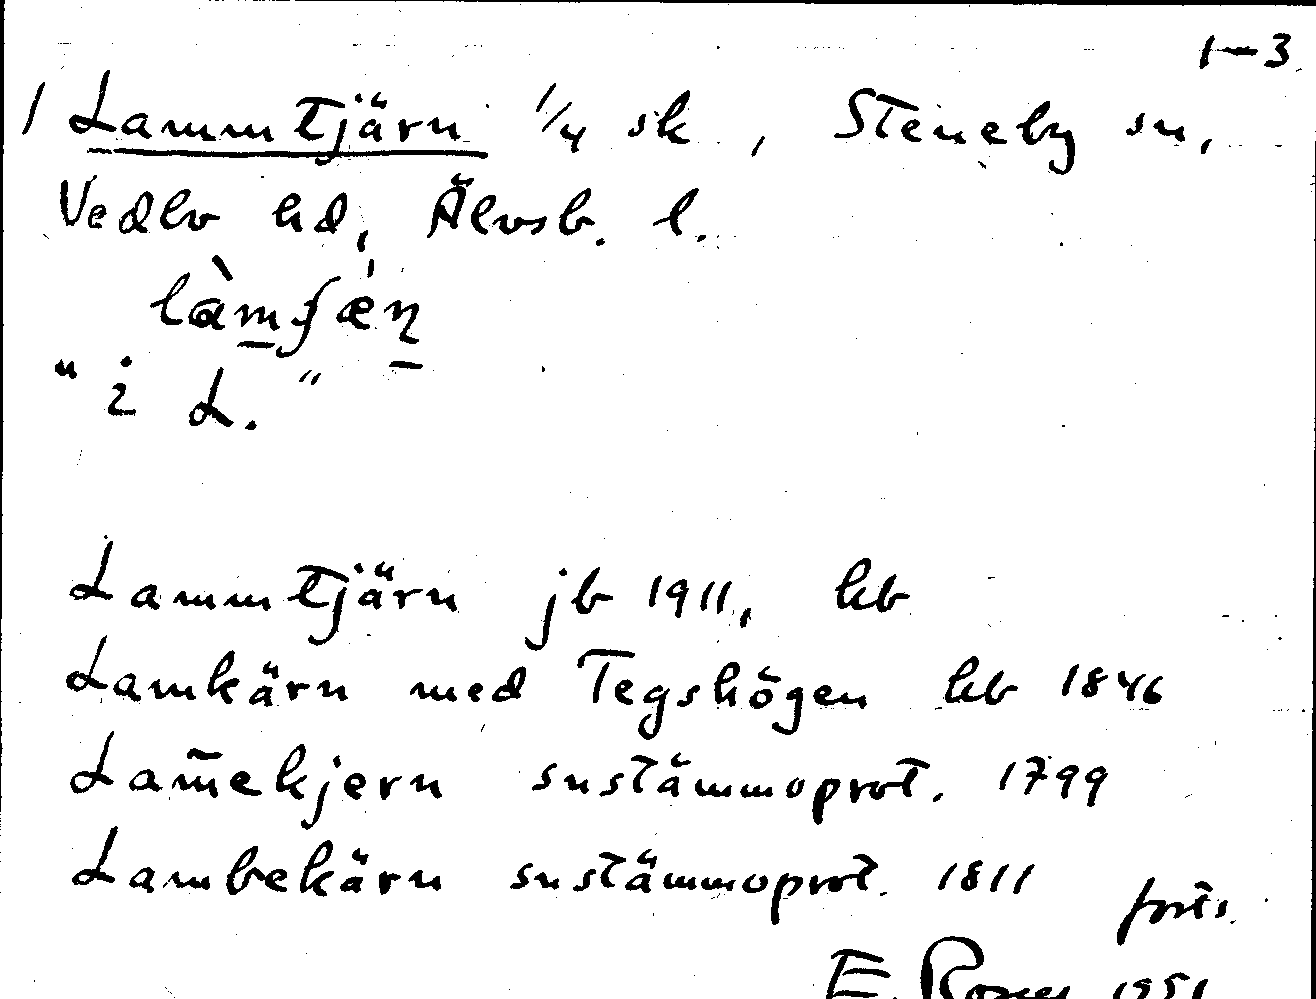 1-3
1 Lammtjärn 1/4 sk, Steneby sn,
Vedbo hd, Älvsb. l.
"i L."
Lammtjärn jb 1911, kb
Lamkärn med Tegshögen kb 1846
Lam̄ekjern snstämmoprot. 1799
Lambekärn snstämmoprot. 1811
forts.
E. 1951